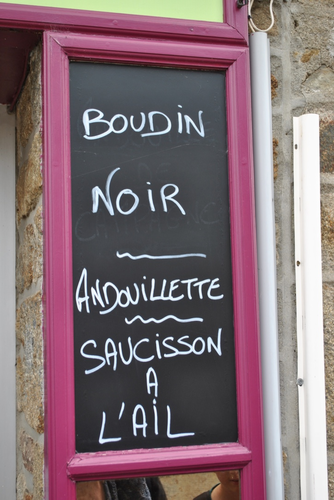 BOUDIN
NOIR
ANDOUILLETTE
SAUCISSON
A
L'AIL